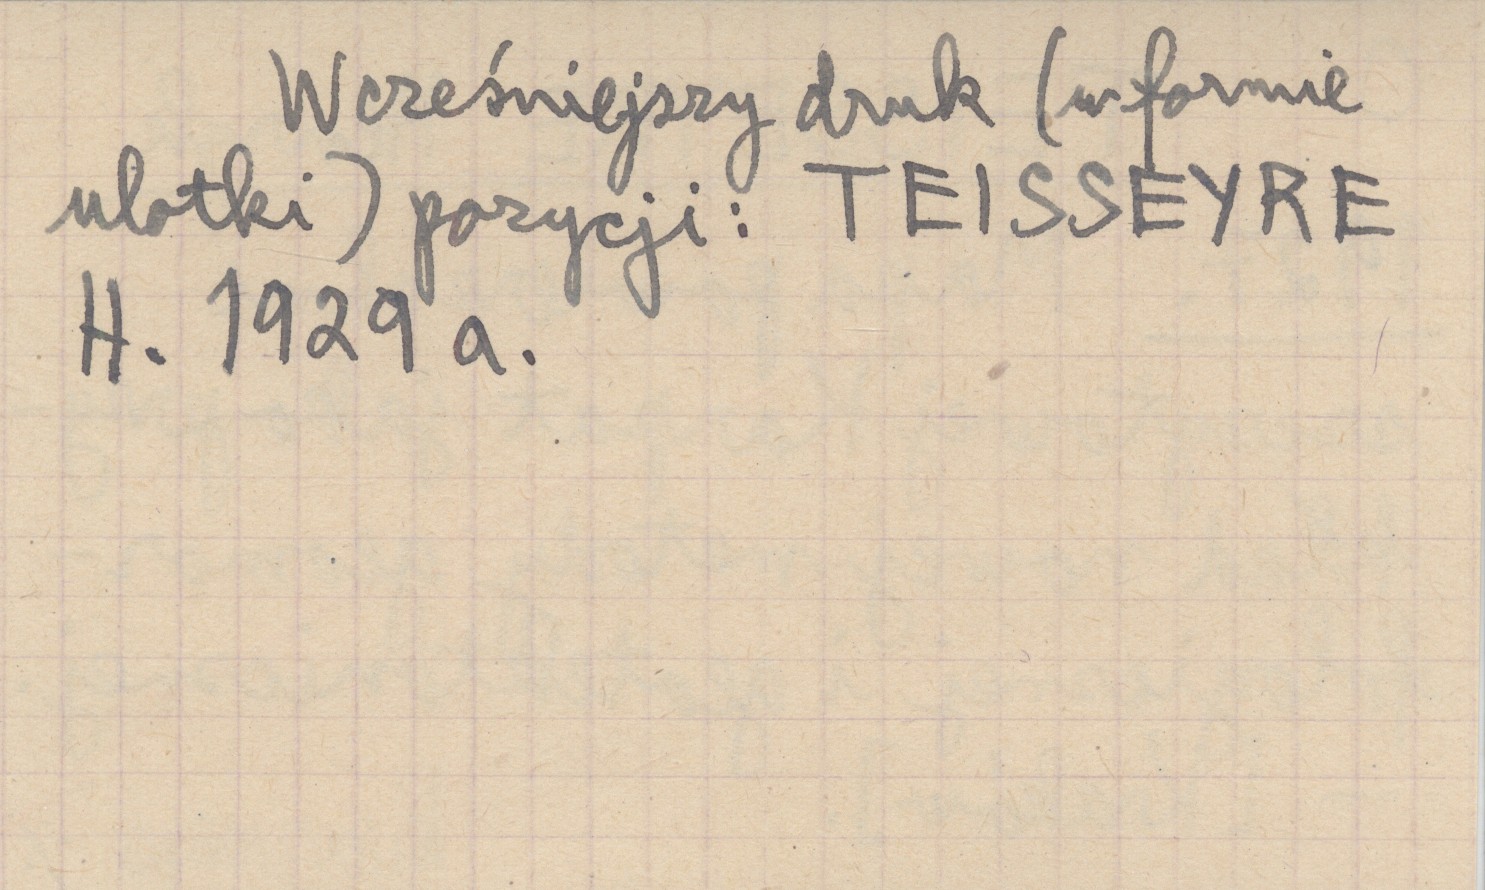 Wcześniejszy druk (w formie
ulotki) pozycji: TEISSEYRE
H. 1929 a.